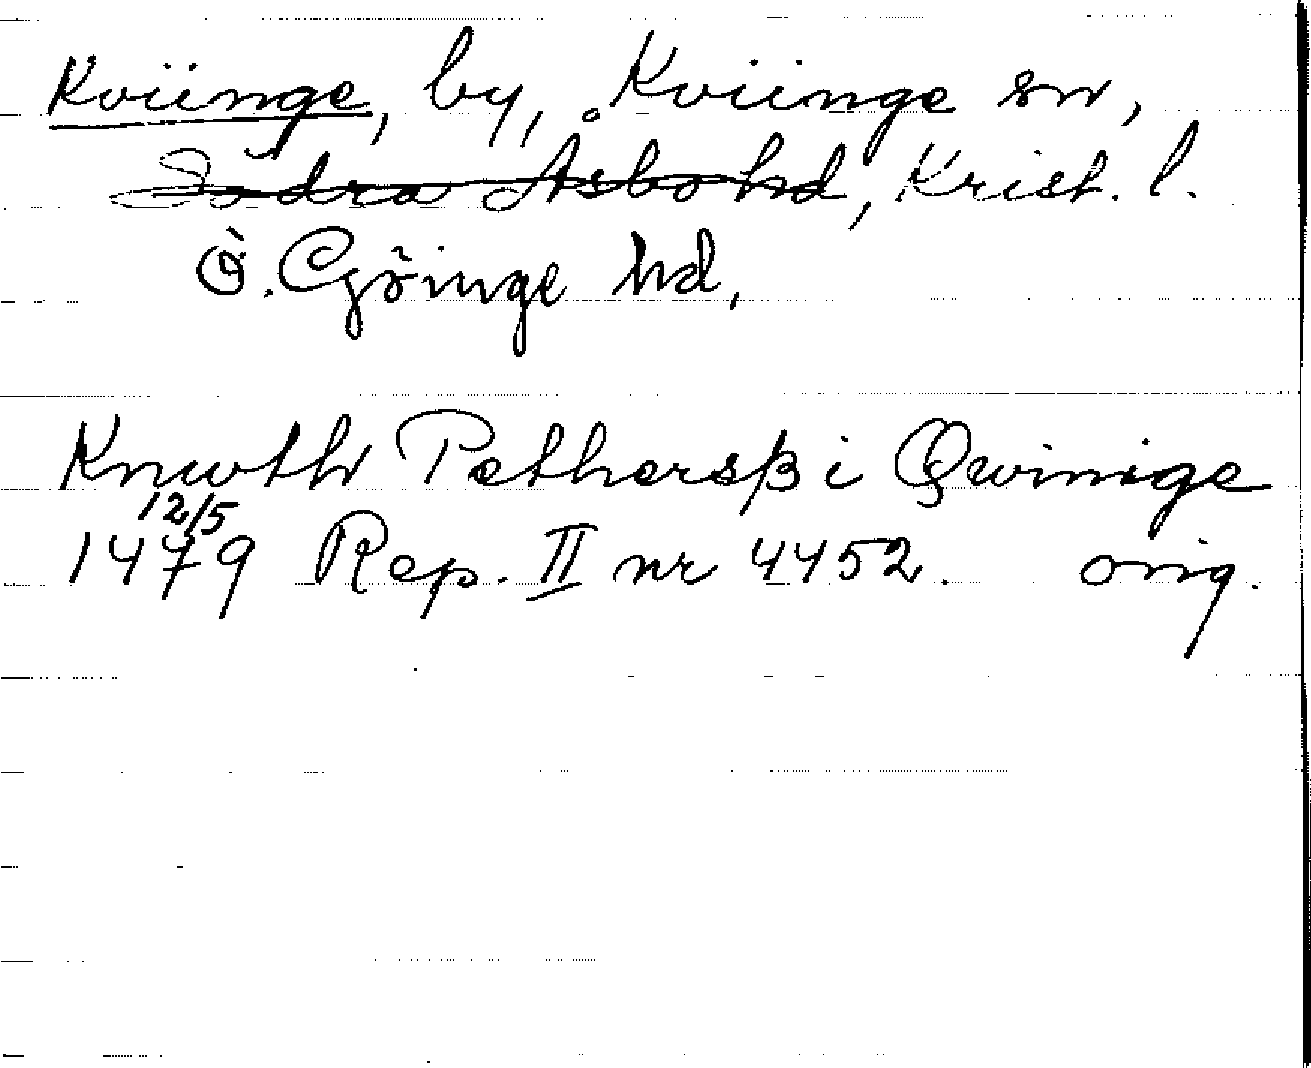 Kviinge, by, Kviinge sn,
Södra Åsbo hd, Krist. l.
Ö. Göinge hd,
Knwthr Pæthersß i Qwinige
12/5
1479 Rep. II nr 4452. orig.